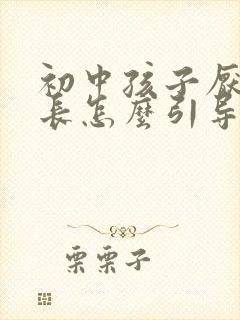 初中孩子厌
长怎麽引导
栗栗子